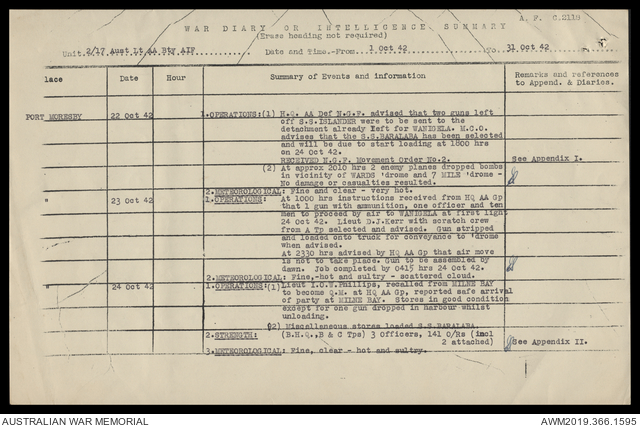 A. F. C.2119
WAR DIARY OR INTELLIGENCE SUMMARY
(Erase heading not required)
Unit. 2/17 Aust Lt AA Bty AIF Date and Time.-From 1 Oct 42 To 31 Oct 42
lace Date Hour Summary of Events and information Remarks and references
to Append. & Diaries.
PORT MORESBY 22 Oct 42 1.OPERATIONS:(1) H.Q. AA Def N.G.F. advised that two guns left
off S.S.ISLANDER were to be sent to the
detachment already left for WANIGELA. M.C.O.
advises that the S.S.BARALABA has been selected
and will be due to start loading at 1800 hrs
on 24 Oct 42.
RECEIVED N.G.F. Movement Order No.2. See Appendix I.
(2) At approx 2010 hrs 2 enemy planes dropped bombs
in vicinity of WARDS 'drome and 7 MILE 'drome -
No damage or casualties resulted.
2.METEOROLOGICAL: Fine and clear - very hot.
" 23 Oct 42 1.OPERATIONS: At 1000 hrs instructions received from HQ AA Gp
that 1 gun with ammunition, one officer and ten
men to proceed by air to WANIGELA at first light
24 Oct 42. Lieut D.J.Kerr with scratch crew
from A Tp selected and advised. Gun stripped
and loaded onto truck for conveyance to 'drome
when advised.
At 2330 hrs advised by HQ AA Gp that air move
is not to take place. Gun to be assembled by
dawn. Job completed by 0415 hrs 24 Oct 42.
2.METEOROLOGICAL: Fine,-hot and sultry - scattered cloud.
" 24 Oct 42 1.OPERATIONS:(1) Lieut I.O.W.Phillips, recalled from MILNE BAY
to become Q.M. at HQ AA Gp, reported safe arrival
of party at MILNE BAY. Stores in good condition
except for one gun dropped in harbour whilst
unloading.
(2) Miscellaneous stores loaded S.S.BARALABA
2.STRENGTH: (B.H.Q.,B & C Tps) 3 Officers, 141 O/Rs (incl
2 attached) See Appendix II.
3.METEOROLOGICAL: Fine, clear - hot and sultry.
AUSTRALIAN WAR MEMORIAL AWM2019.366.1595